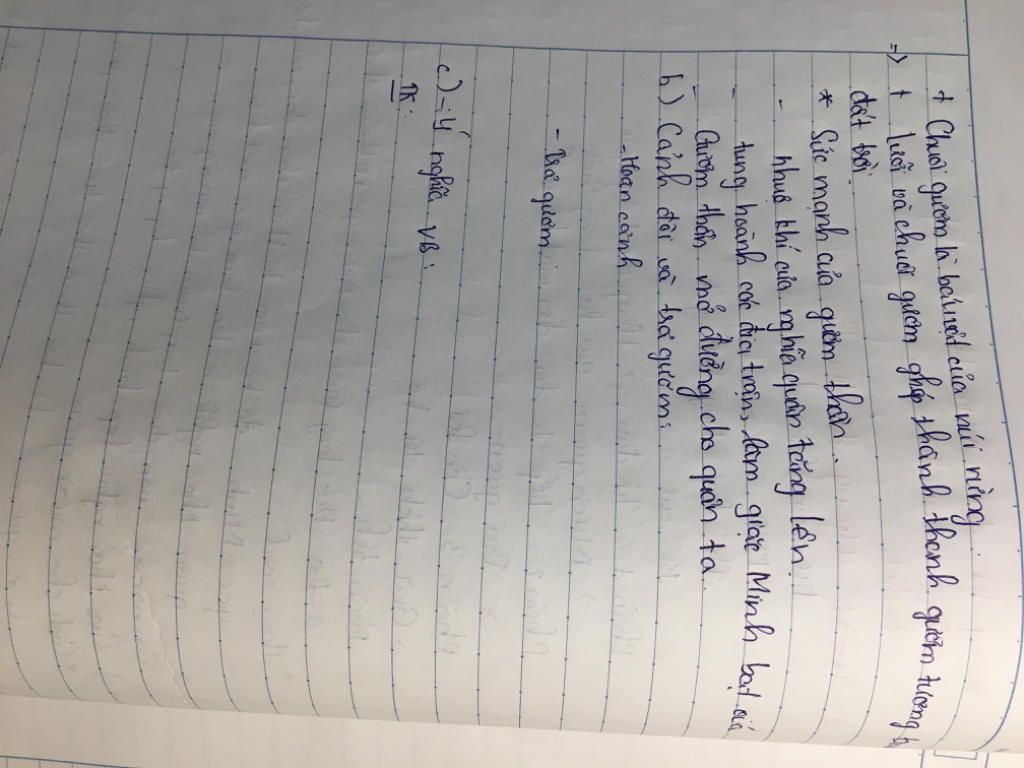 + Chuôi gươm là báu vật của núi rừng.
=> + Lưỡi và chuôi gươm ghép thành thanh gươm tượng
đất trời.
* Sức mạnh của gươm thần.
- Nhuệ khí của nghĩa quân tăng lên.
- tung hoành các địa trận, làm giặc Minh bạt vía
- Gươm thần mở đường cho quân ta.
b) Cảnh đòi và trả gươm:
- Hoàn cảnh
- Trả gươm
c) - Ý nghĩa VB:
TK: